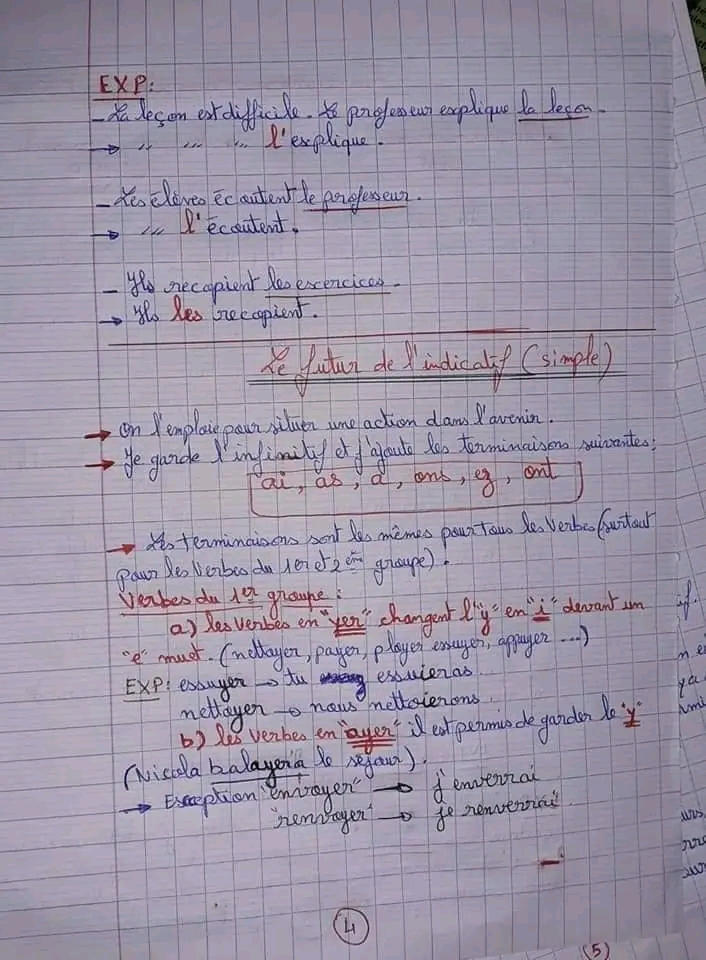 EXP:
- La leçon est difficile. Le professeur explique la leçon.
→ " " " l'explique.
- Les élèves écoutent le professeur.
→ " l'écoutent.
- Ils recopient les escercices.
→ Ils les recopient.
Le futur de l'indicatif (simple)
→ On l'emploie pour situer une action dans l'avenir.
→ Je garde l'infinitif et j'ajoute les terminaisons suivantes:
ai, as, a, ons, ez, ont
→ Les terminaisons sont les mêmes pour tous les verbes (surtout
pour les Verbes du 1er et 2ème groupe).
Verbes du 1er groupe:
a) les verbes en "yer" changent l'"y" en "i" devant un
"e" muet. (nettoyer, payer, ployer essuyer, appuyer ...)
EXP: essuyer → tu essuieras.
nettoyer → nous nettoierons.
b) les verbes en "ayer" il est permis de garder le "y"
(Nicola balayera le séjour).
→ Exception "envoyer" → j'enverrai
"renvoyer" → je renverrai.
4
(5)